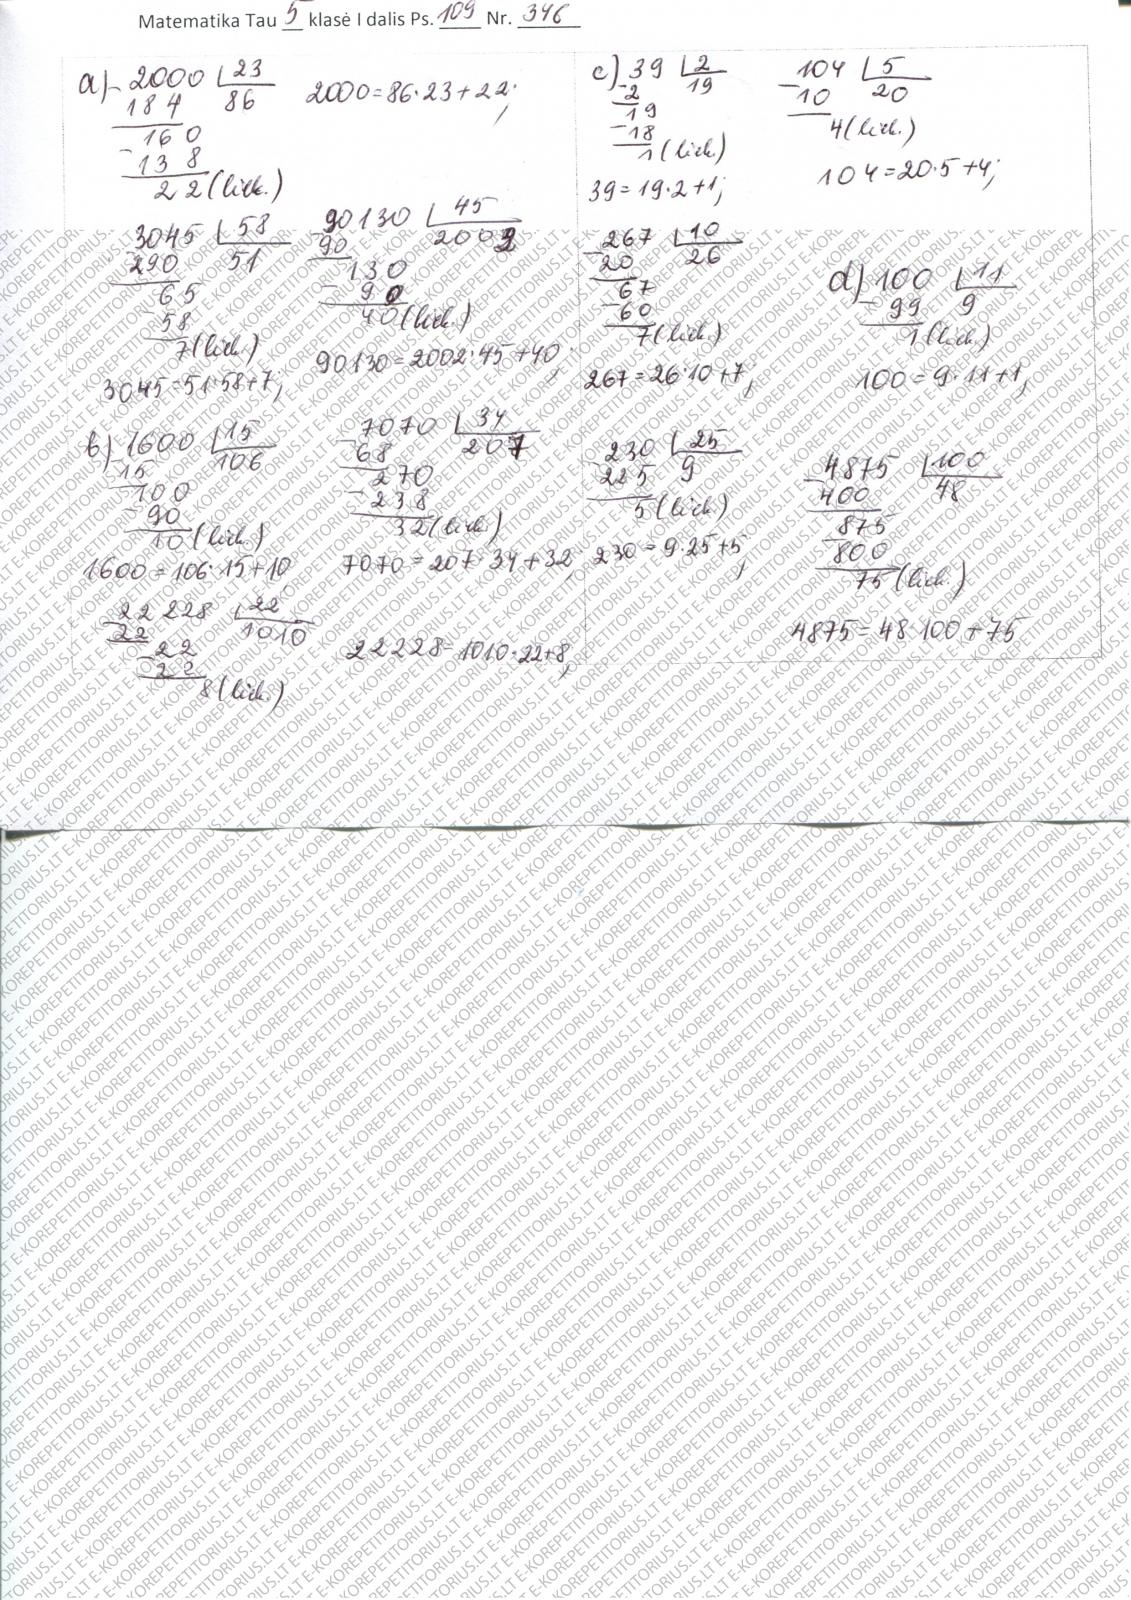 Matematika Tau 5 klasė I dalis Ps. 109 Nr. 346
a) - 2000 | 23
184 86
160
- 138
22 (liek.)
2000 = 86·23 + 22;
- 3045 | 58
290 51
65
- 58
7 (liek.)
3045 = 51·58 + 7;
- 90130 | 45
90 2002
130
- 90
40 (liek.)
90130 = 2002·45 + 40;
b) - 1600 | 15
15 106
100
- 90
10 (liek.)
1600 = 106·15 + 10
- 7070 | 34
68 207
270
- 238
32 (liek.)
7070 = 207·34 + 32;
- 22 228 | 22
22 1010
- 22
22
8 (liek.)
22228 = 1010·22 + 8;
c) - 39 | 2
2 19
19
- 18
1 (liek.)
39 = 19·2 + 1;
- 104 | 5
10 20
4 (liek.)
104 = 20·5 + 4;
- 267 | 10
20 26
67
- 60
7 (liek.)
267 = 26·10 + 7;
- 230 | 25
225 9
5 (liek.)
230 = 9·25 + 5;
d) - 100 | 11
99 9
1 (liek.)
100 = 9·11 + 1;
- 4875 | 100
400 48
875
- 800
75 (liek.)
4875 = 48·100 + 75
E-KOREPETITORIUS.LT